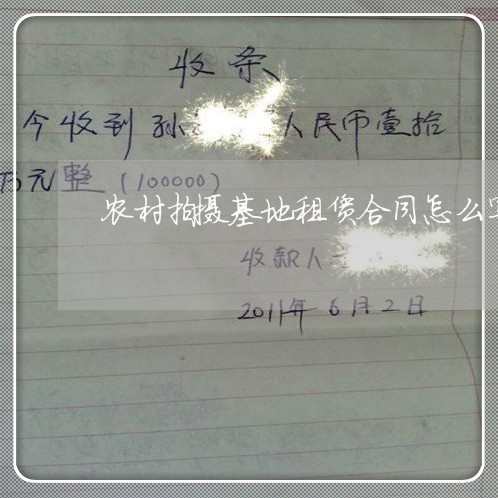 收条
今收到孙 人民币壹拾
万元整（100000）
农村拍摄基地租赁合同怎么
收款人
2011年6月2日